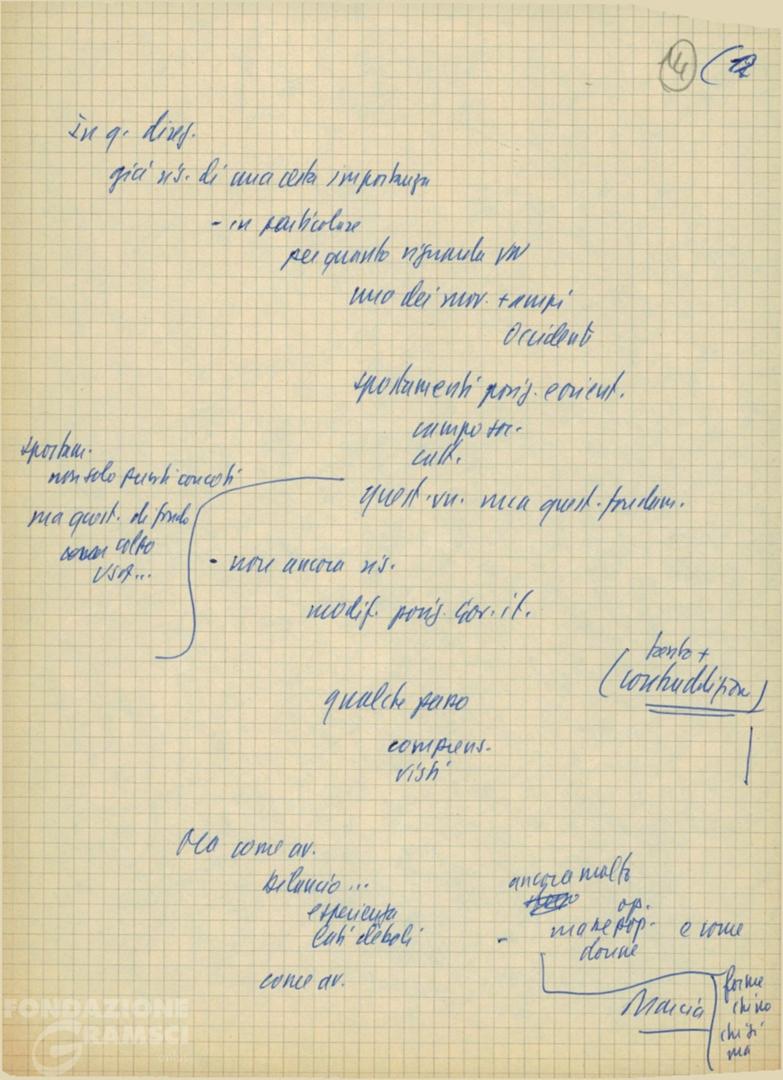 14 (12
In q. direz.
già ris. di una certa importanza
- in particolare
per quanto riguarda VN
uno dei mov. + ampi
Occidente
spostamenti posiz. e orient.
campo soc.
catt.
quest. vn. una quest. fondam.
spostam.
non solo punti concreti
ma quest. di fondo
colto
USA...
- non ancora ris.
modif. posiz. Gov. it.
tanto +
(contraddizion)
qualche passo
comprens.
visti
Ma come av.
bilancio...
esperienza
lati deboli
come av.
ancora molto
op.
- masse pop. e come
donne
Marcia
forme
chi no
chi sì
ma
FONDAZIONE
GRAMSCI